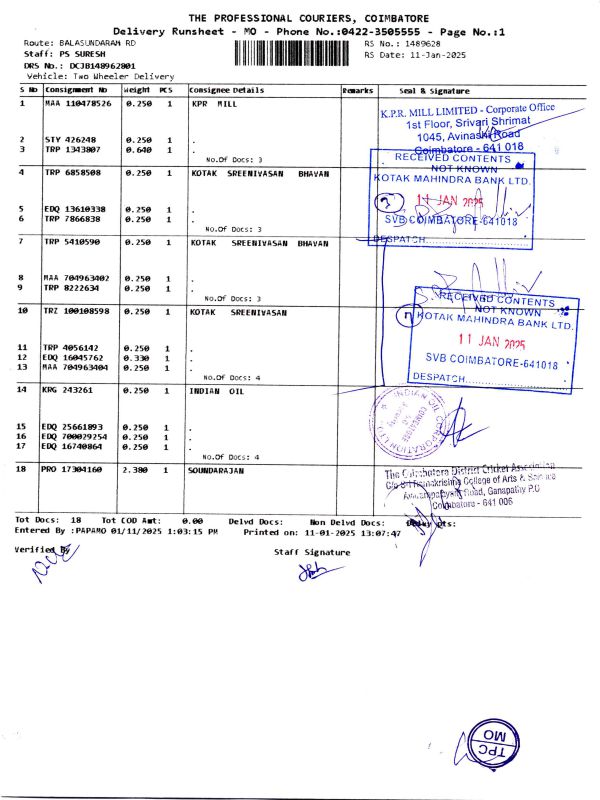 THE PROFESSIONAL COURIERS, COIMBATORE
Delivery Runsheet - MO - Phone No.:0422-3505555 - Page No.:1
Route: BALASUNDARAM RD
RS No.: 1489628
Staff: PS SURESH
RS Date: 11-Jan-2025
DRS No.: DCJB148962801
Vehicle: Two Wheeler Delivery
S No Consignment No Weight PCS Consignee Details Remarks Seal & Signature
1 MAA 110478526 0.250 1 KPR MILL
K.P.R. MILL LIMITED - Corporate Office
1st Floor, Srivari Shrimat
1045, Avinashi Road
Coimbatore - 641 018
2 STY 426248 0.250 1 .
3 TRP 1343807 0.640 1 .
No.Of Docs: 3
RECEIVED CONTENTS
NOT KNOWN
KOTAK MAHINDRA BANK LTD.
11 JAN 2025
SVB COIMBATORE-641018
DESPATCH
4 TRP 6858508 0.250 1 KOTAK SREENIVASAN BHAVAN
5 EDQ 13610338 0.250 1 .
6 TRP 7866838 0.250 1 .
No.Of Docs: 3
7 TRP 5410590 0.250 1 KOTAK SREENIVASAN BHAVAN
8 MAA 704963402 0.250 1 .
9 TRP 8222634 0.250 1 .
No.Of Docs: 3
RECEIVED CONTENTS
NOT KNOWN
KOTAK MAHINDRA BANK LTD.
11 JAN 2025
SVB COIMBATORE-641018
DESPATCH
10 TRZ 100108598 0.250 1 KOTAK SREENIVASAN
11 TRP 4056142 0.250 1 .
12 EDQ 16045762 0.330 1 .
13 MAA 704963404 0.250 1 .
No.Of Docs: 4
14 KRG 243261 0.250 1 INDIAN OIL
INDIAN OIL CORPORATION LTD.
COIMBATORE
15 EDQ 25661893 0.250 1 .
16 EDQ 700029254 0.250 1 .
17 EDQ 16740864 0.250 1 .
No.Of Docs: 4
18 PRO 17304160 2.380 1 SOUNDARAJAN
The Coimbatore District Cricket Association
C/o Sri Ramakrishna College of Arts & Science
Road, Ganapathy P.O
Coimbatore - 641 006
Tot Docs: 18 Tot COD Amt: 0.00 Delvd Docs: Non Delvd Docs:
Entered By :PAPAMO 01/11/2025 1:03:15 PM Printed on: 11-01-2025 13:07:47
Verified By
Staff Signature
TPC
MO